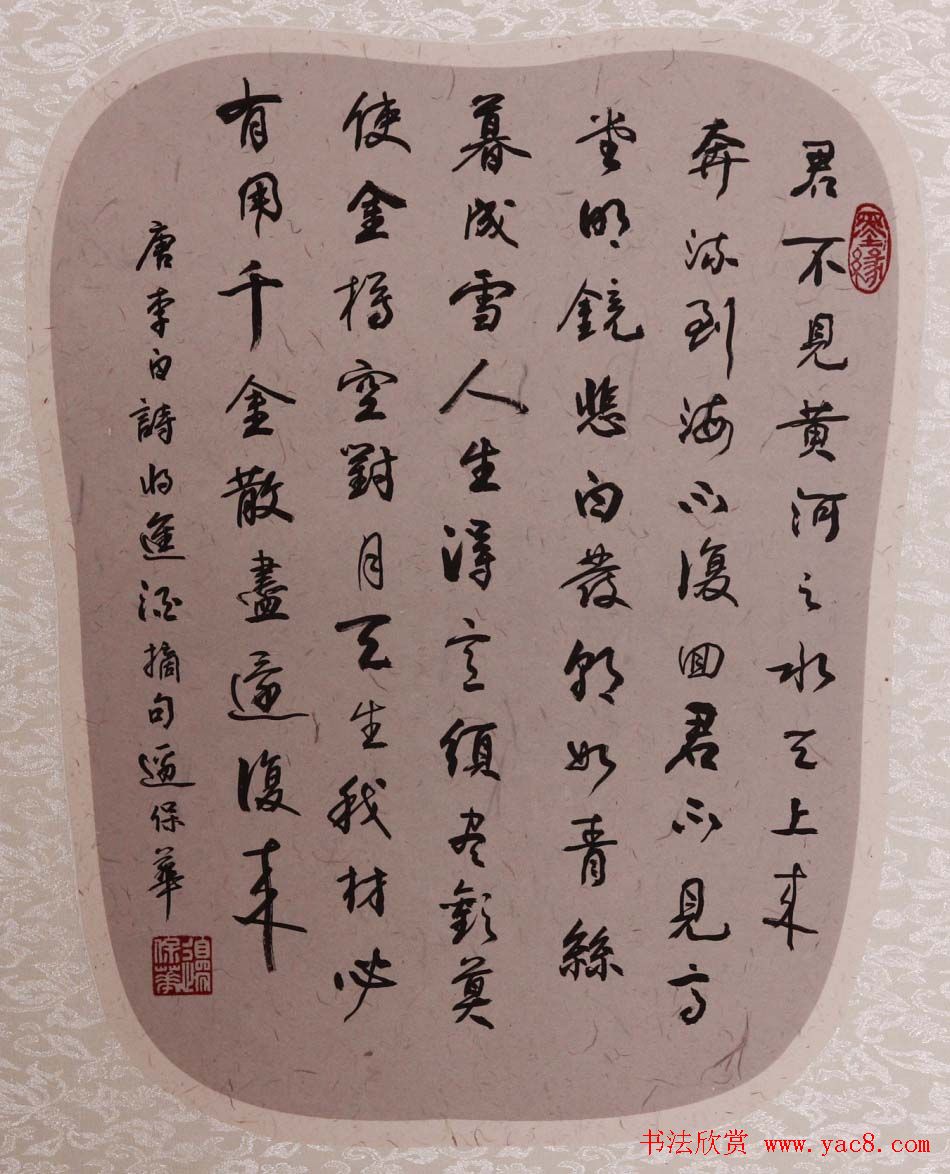 君不見黄河之水天上来
奔流到海不復回君不見高
堂明鏡悲白發朝如青絲
暮成雪人生得意須尽歡莫
使金樽空對月天生我材必
有用千金散盡還復来
唐李白詩将進酒摘句保華
墨緣
保華
书法欣赏 www.yac8.com